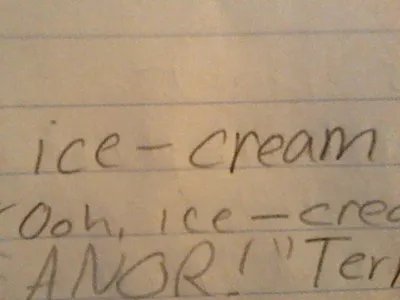 ice-cream
"Ooh, ice-crea
ANOR!" Ter